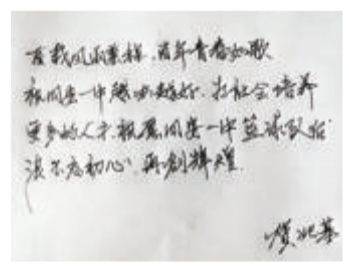 百载风雨兼程,百年青春如歌
祝同安一中越办越好,为社会培养
更多的人才,祝愿同安一中篮球队
不忘初心,再创辉煌.